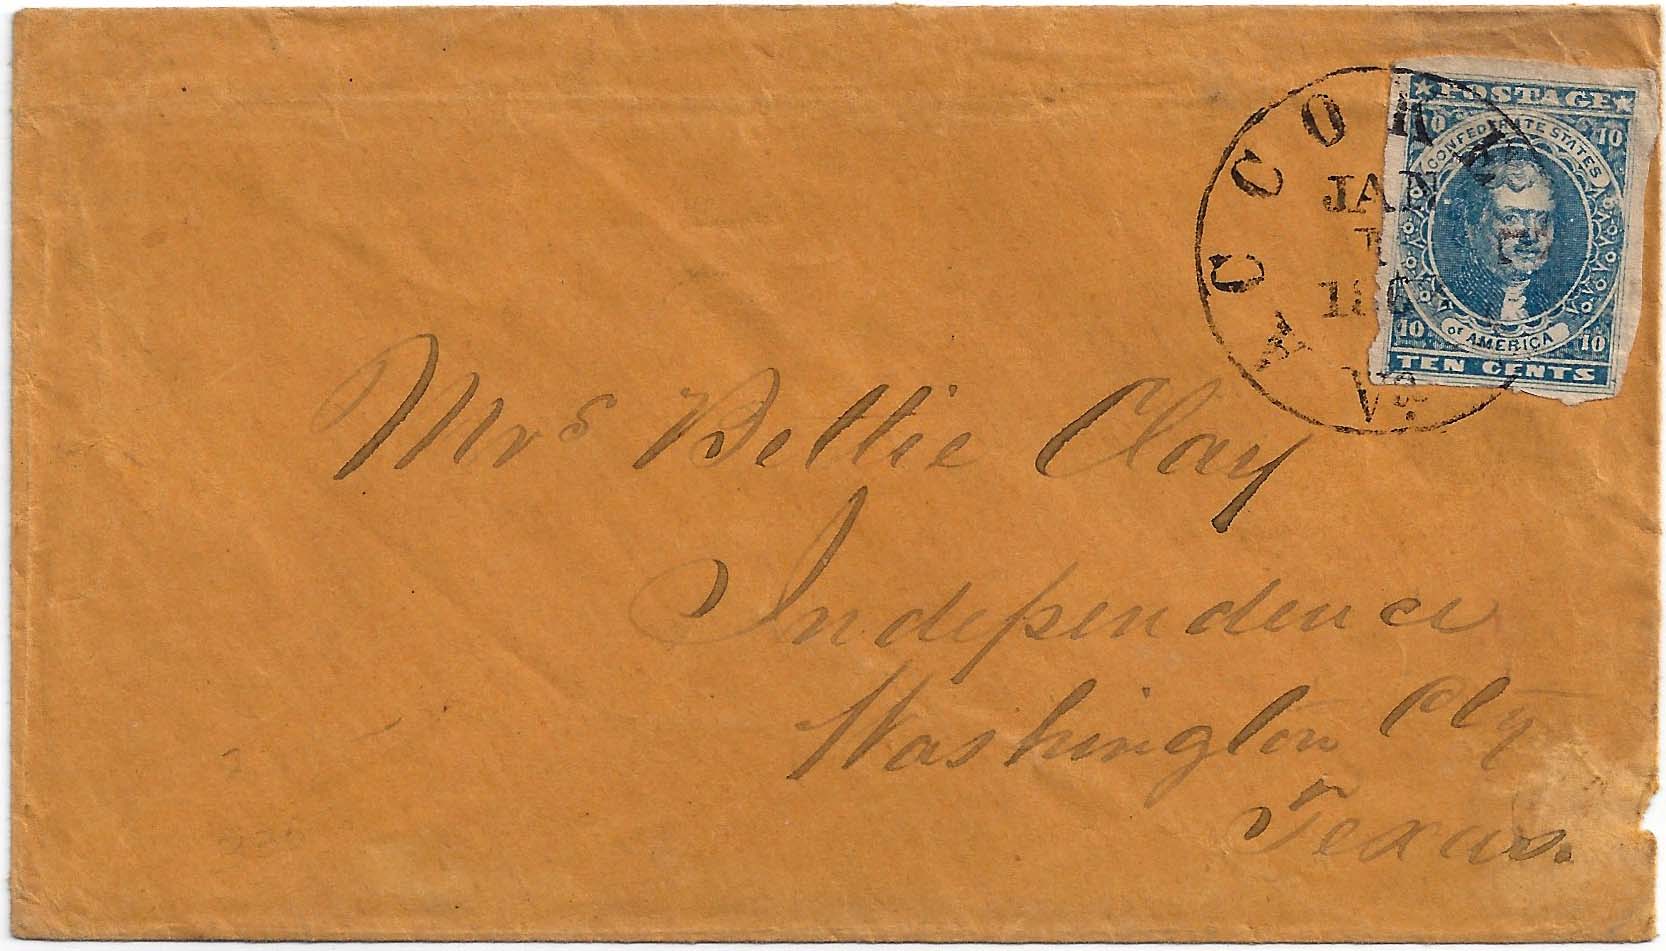 ACCOMAC
JAN
186
Va.
★ POSTAGE ★
10 10
CONFEDERATE STATES
OF AMERICA
10 10
TEN CENTS
Mrs Bettie Clay
Independence
Washington Cty
Texas.